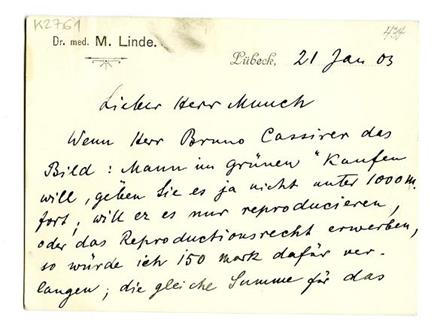 K2761
434
Dr. med. M. Linde.
Lübeck, 21 Jan 03
Lieber Herr Munch
Wenn Herr Bruno Cassirer das
Bild: Mann im grünen" Kaufen
will, geben Sie es ja nicht unter 1000 M.
fort; will er es nur reproducieren,
oder das Reproductionsrecht erwerben,
so würde ich 150 mark dafür ver-
langen; die gleiche Summe für das